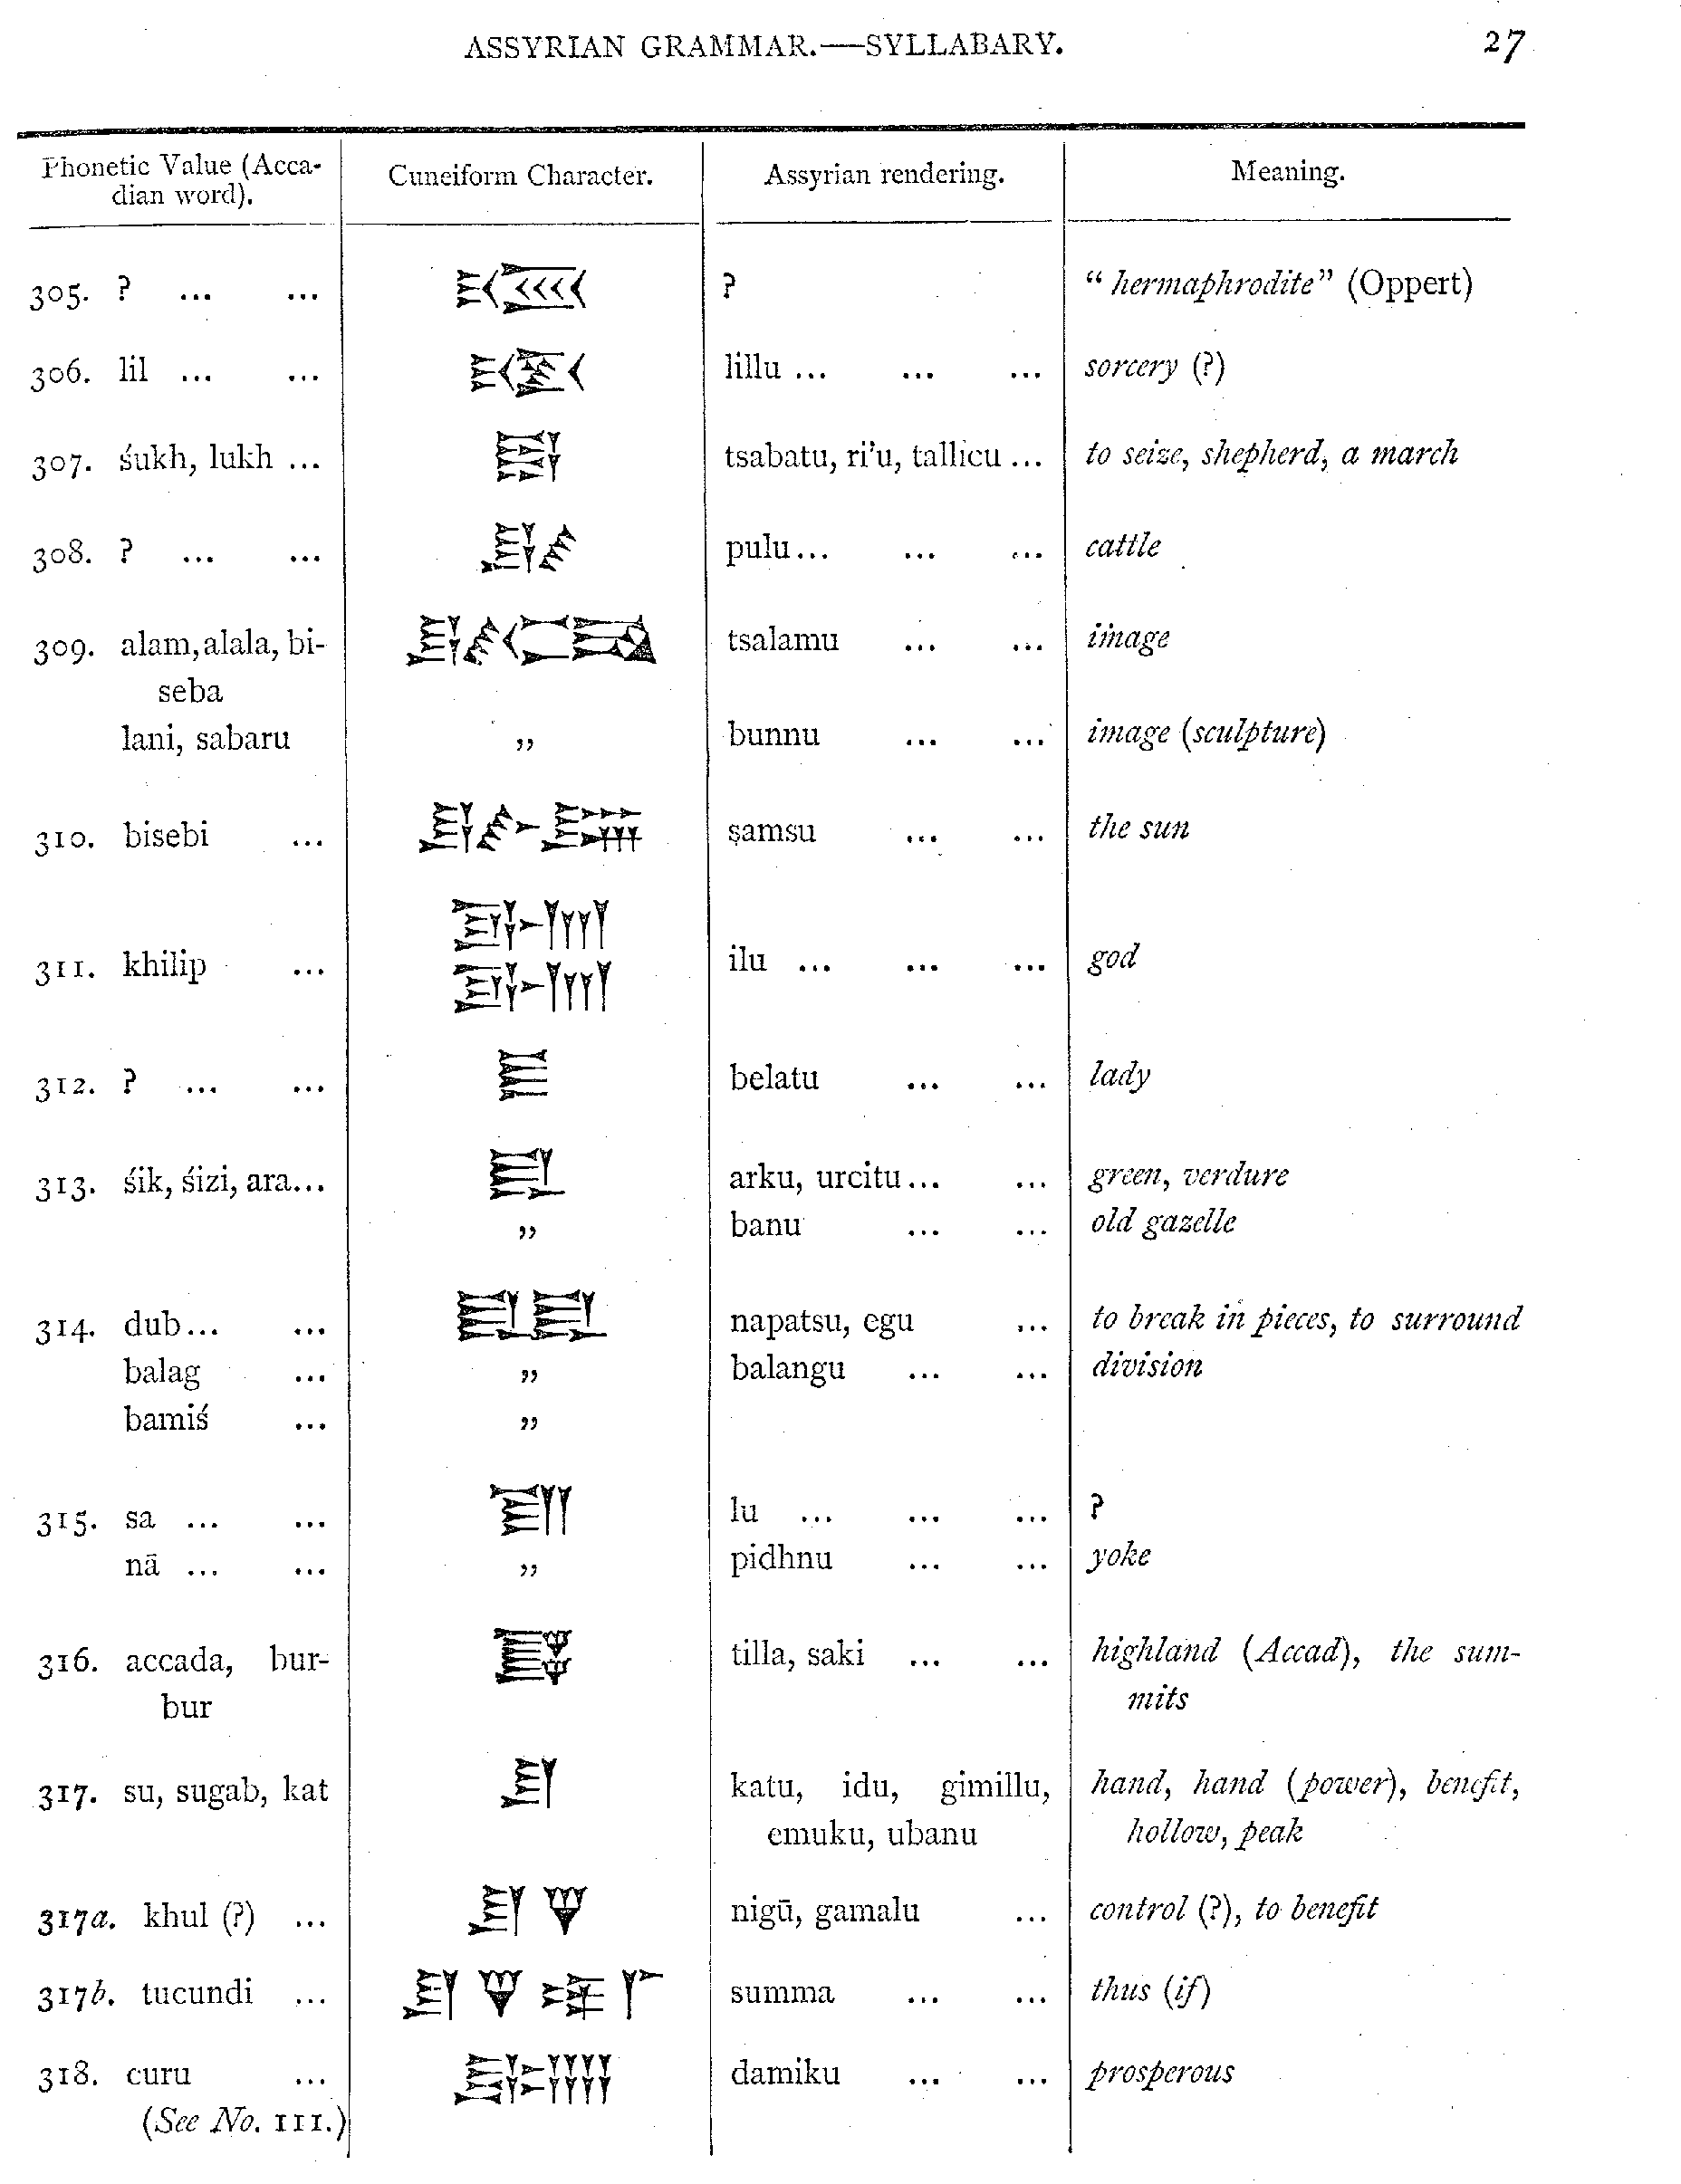 ASSYRIAN GRAMMAR.—SYLLABARY. 27
Phonetic Value (Accadian word). Cuneiform Character. Assyrian rendering. Meaning.
305. ? ... ... ? " hermaphrodite" (Oppert)
306. lil ... ... lillu ... ... ... sorcery (?)
307. śukh, lukh ... tsabatu, ri'u, tallicu ... to seize, shepherd, a march
308. ? ... ... pulu... ... ... cattle
309. alam, alala, bi- tsalamu ... ... image
seba
lani, sabaru ,, bunnu ... ... image (sculpture)
310. bisebi ... ṣamsu ... ... the sun
311. khilip ... ilu ... ... ... god
312. ? ... ... belatu ... ... lady
313. śik, śizi, ara... arku, urcitu... ... green, verdure
,, banu ... ... old gazelle
314. dub... ... napatsu, egu ... to break in pieces, to surround
balag ... ,, balangu ... ... division
bamiś ... ,,
315. sa ... ... lu ... ... ... ?
nā ... ... ,, pidhnu ... ... yoke
316. accada, bur- tilla, saki ... ... highland (Accad), the sum-
bur mits
317. su, sugab, kat katu, idu, gimillu, hand, hand (power), benefit,
emuku, ubanu hollow, peak
317a. khul (?) ... nigū, gamalu ... control (?), to benefit
317b. tucundi ... summa ... ... thus (if)
318. curu ... damiku ... ... prosperous
(See No. III.)